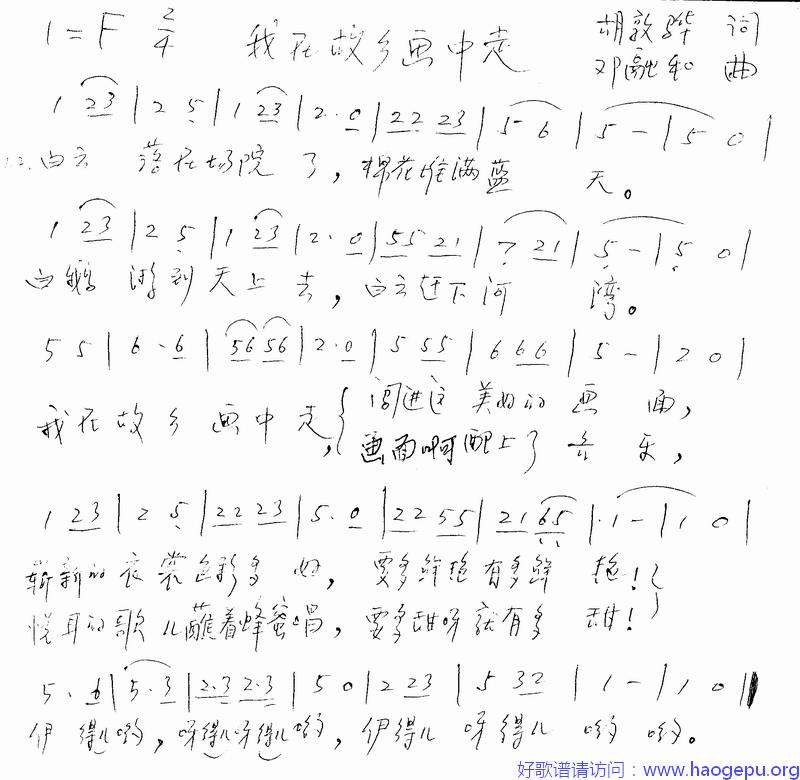 1=F 2/4 我在故乡画中走 胡敦骅 词
邓融和 曲
1 23 | 2 5 | 1 23 | 2· 0 | 22 23 | 5 6 | 5 - | 5 0 |
1.2.白云 落在场院 了，棉花堆满蓝 天。
1 23 | 2 5 | 1 23 | 2· 0 | 55 21 | 7 21 | 5 - | 5 0 |
白鹅 游到天上 去，白云迁下河 湾。
5 5 | 6 · 6 | 56 56 | 2· 0 | 5 55 | 6 66 | 5 - | 2 0 |
我在故乡画中走，{闯进这 美好的 画 面，
画面啊配上了 音 乐，
1 23 | 2 5 | 22 23 | 5· 0 | 22 55 | 21 65 | 1 - | 1 0 |
崭新的衣裳色彩多 好，要多鲜艳有多鲜 艳！}
悦耳的歌儿蘸着蜂蜜唱，要多甜呀就有多 甜！
5 · 6 | 5 · 3 | 2·3 2·3 | 5 0 | 2 23 | 5 32 | 1 - | 1 0 ‖
伊 得儿哟，呀得儿呀得儿哟，伊得儿 呀得儿 哟 哟。
好歌谱请访问：www.haogepu.org